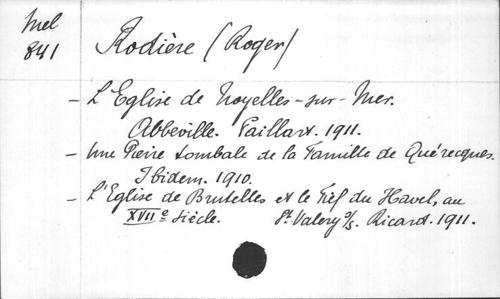 Mel
841
Rodière (Roger)
- L'Eglise de Noyelles-sur-Mer.
Abbeville. Paillart. 1911.
- Une Pierre tombale de la Famille de Quérecques.
Ibidem. 1910.
- L'Eglise de Brutelles et le Fief du Havel, au
XVII e siècle. St. Valery s/s. Ricard. 1911.